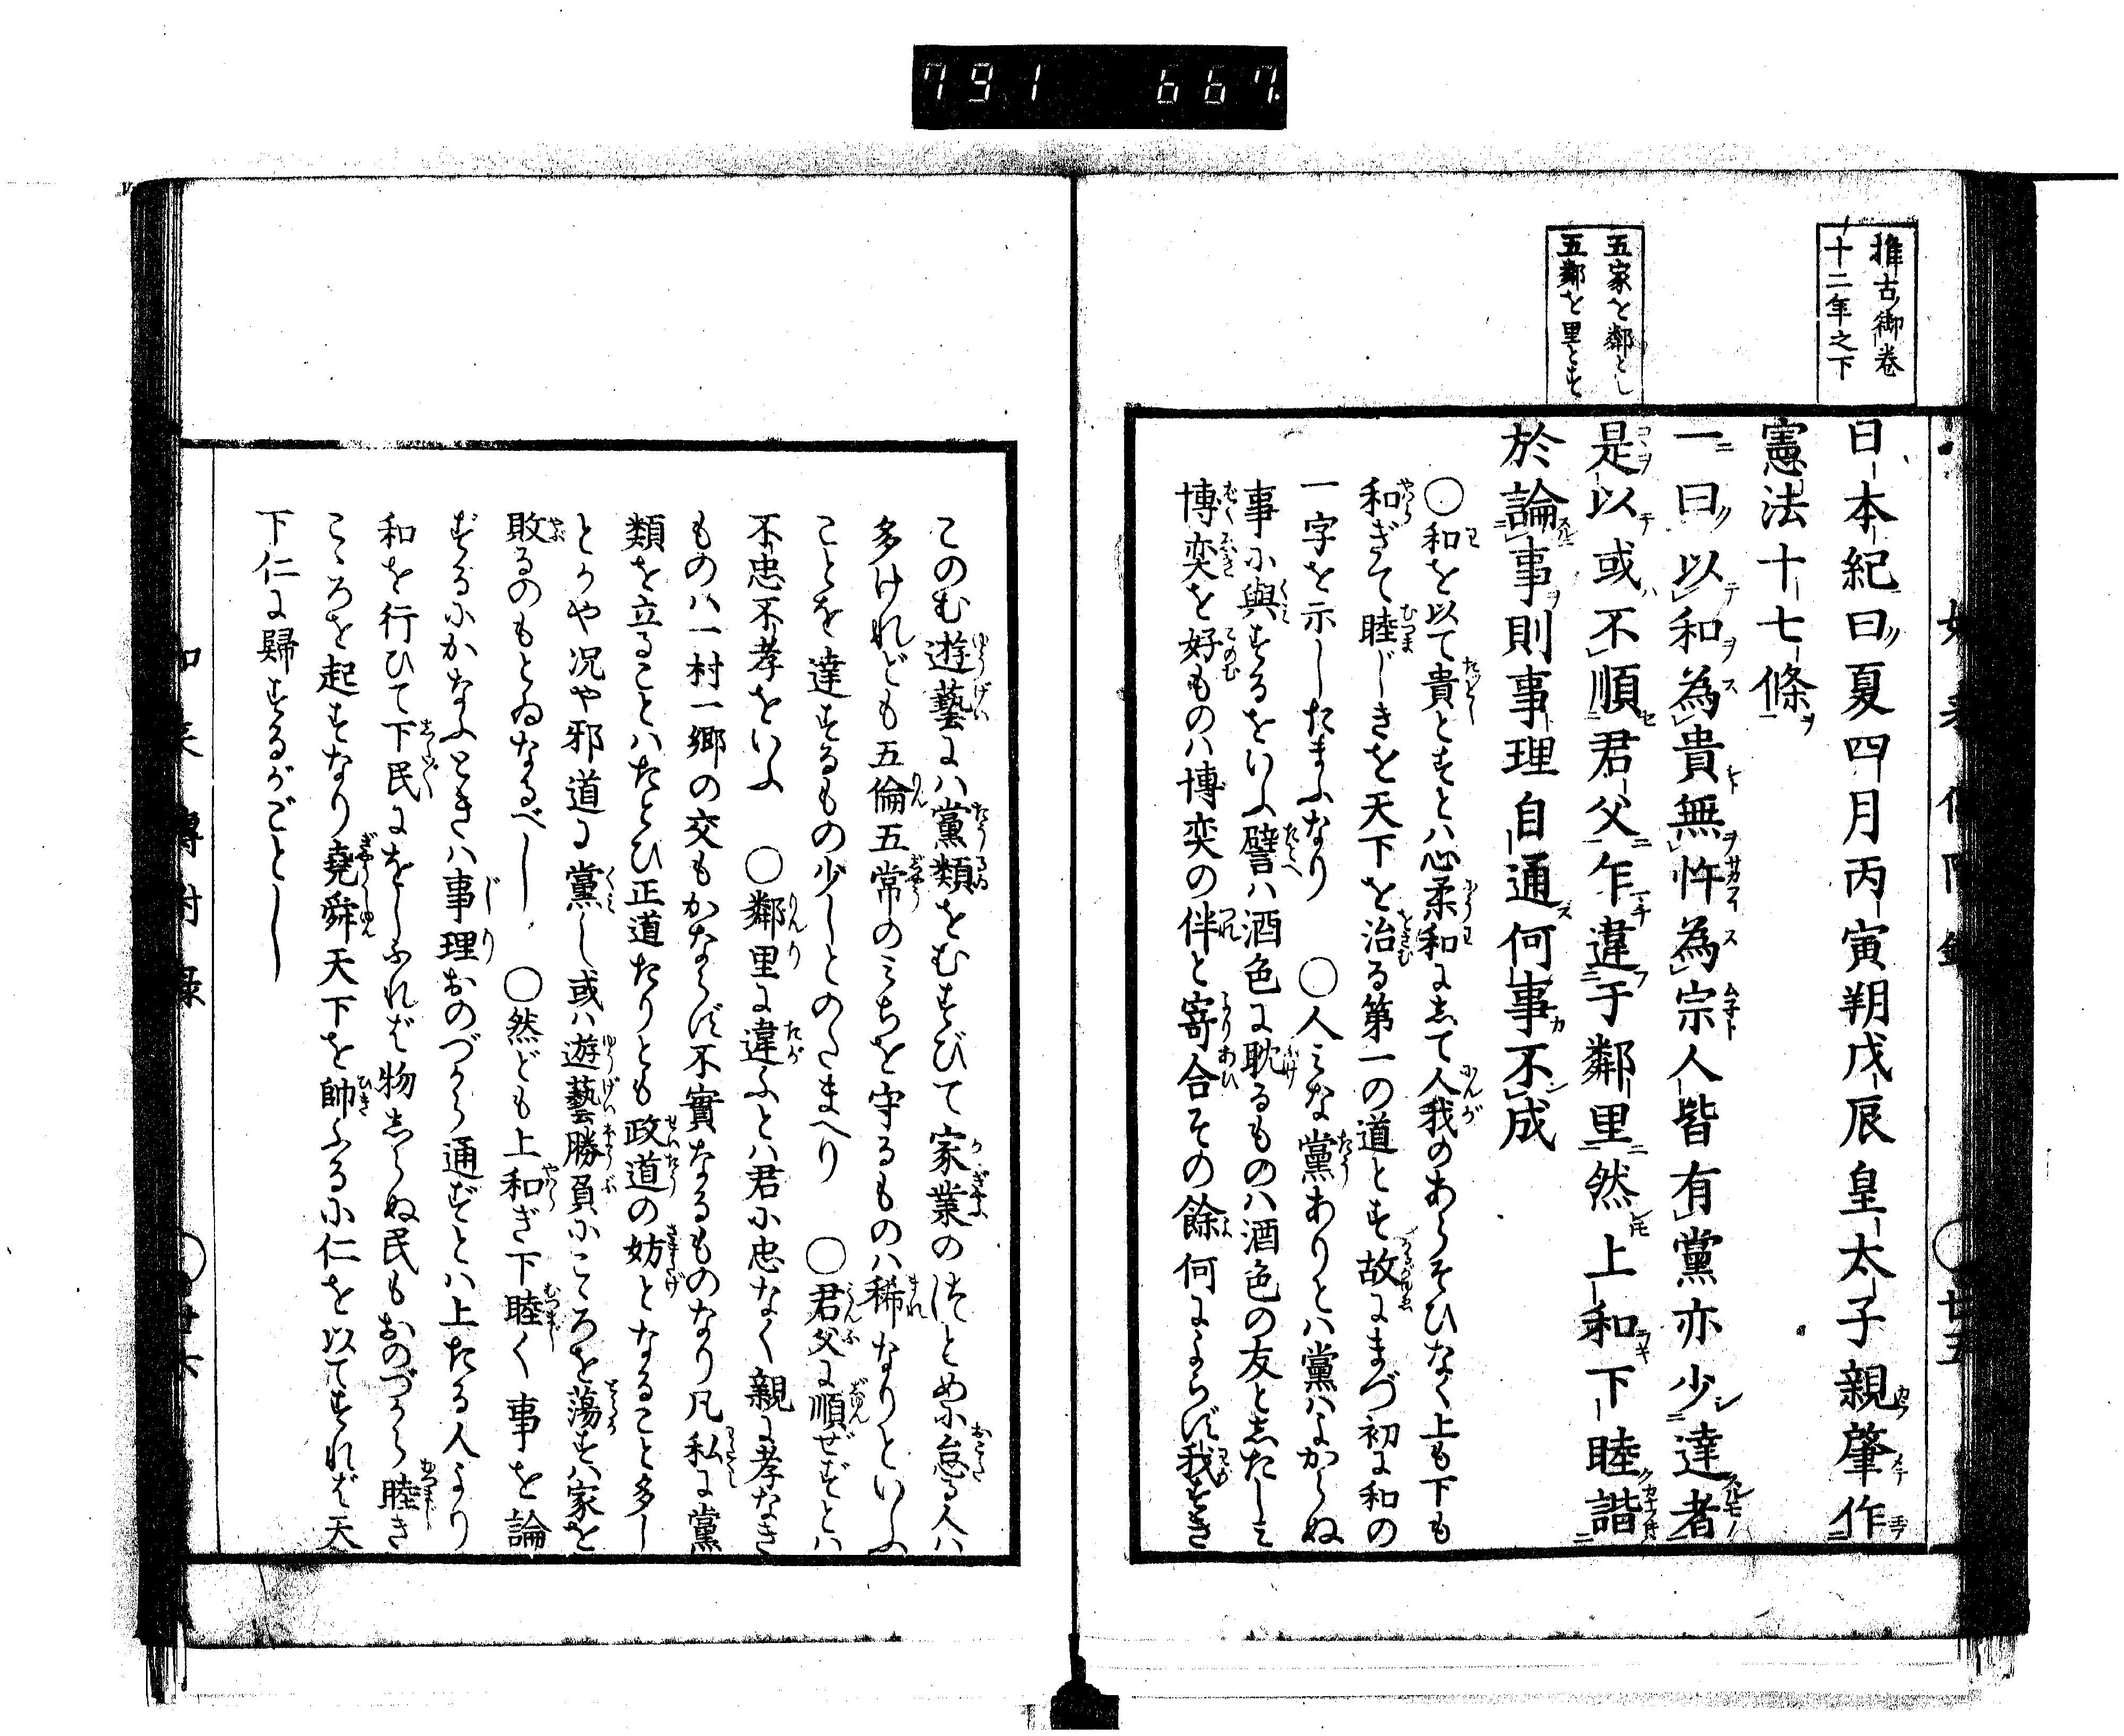 791 667.
推古御巻
十二年之下
五家を鄰とし
五鄰を里とす
日本紀曰夏四月丙寅朔戊辰皇太子親肇作
憲法十七條
一曰以和為貴無忤為宗人皆有黨亦少達者
是以或不順君父乍違于鄰里然上和下睦諧
於論事則事理自通何事不成
○和を以て貴とすとハ心柔和にして人我のあらそひなく上も下も
和ぎて睦じきを天下を治る第一の道とす故にまづ初に和の
一字を示したまふなり　○人みな黨ありとハ黨ハよからぬ
事に與するをいふ譬ハ酒色に耽るものハ酒色の友としたしミ
博奕を好ものハ博奕の伴と寄合その餘何によらず我すき
このむ遊藝にハ黨類をむすびて家業のつとめに怠る人ハ
多けれども五倫五常のミちを守るものハ稀なりといふ
ことを達するもの少しとのたまへり　○君父に順ぜずとハ
不忠不孝をいふ　○鄰里に違ふとハ君に忠なく親に孝なき
ものハ一村一郷の交もかならず不實なるものなり凡私に黨
類を立ることハたとひ正道たりとも政道の妨となること多し
とかや况や邪道に黨し或ハ遊藝勝負にこゝろを蕩すハ家を
敗るのもとゐなるべし　○然ども上和ぎ下睦く事を論
ずるにかなふときハ事理おのづから通ずとハ上たる人より
和を行ひて下民にをしふれば物しらぬ民もおのづから睦き
こゝろを起すなり堯舜天下を帥ふるに仁を以てすれば天
下仁に歸するがごとし